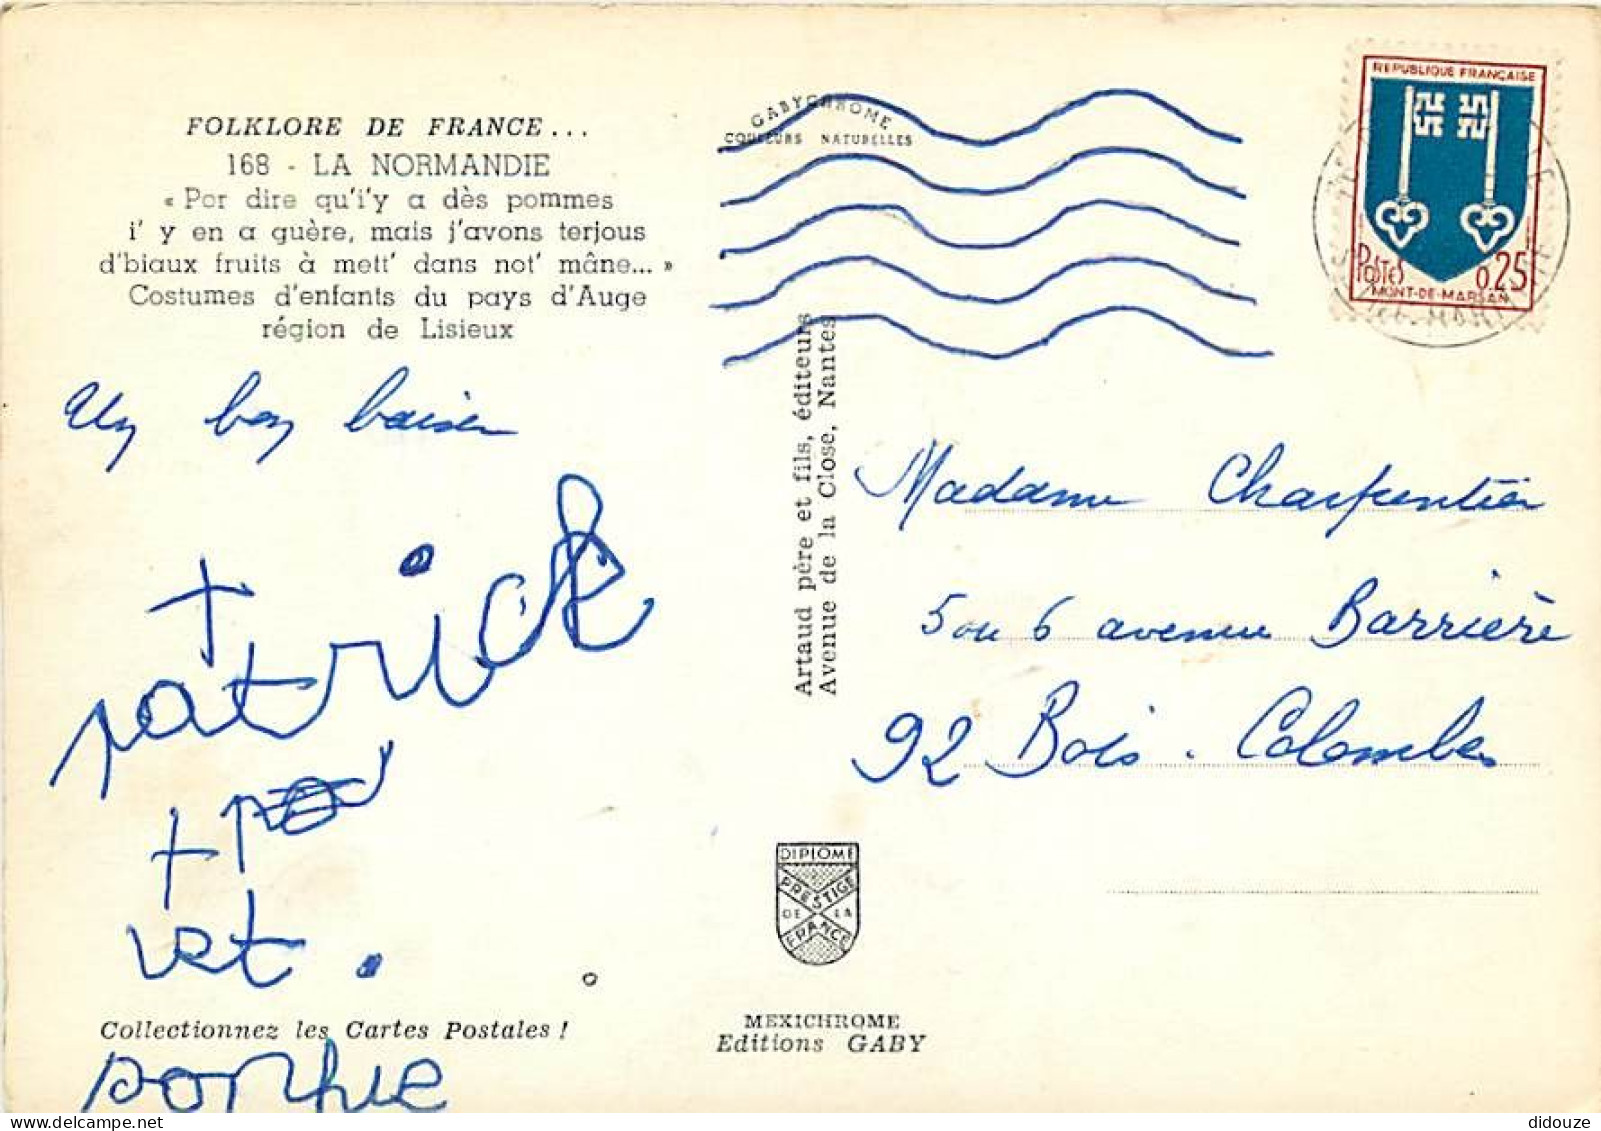 FOLKLORE DE FRANCE...
168 - LA NORMANDIE
« Por dire qu'i'y a dès pommes
i' y en a guère, mais j'avons terjous
d'biaux fruits à mett' dans not' mâne... »
Costumes d'enfants du pays d'Auge
région de Lisieux
Un bon baiser
patrick
et
Collectionnez les Cartes Postales !
sophie
GABYCHROME
COULEURS NATURELLES
Artaud père et fils, éditeurs
Avenue de la Close, Nantes
REPUBLIQUE FRANÇAISE
POSTES 0.25
MONT-DE-MARSAN
Madame Charpentier
5 ou 6 avenue Barrière
92 Bois. Colombes
DIPLOME
PRESTIGE
DE LA
FRANCE
MEXICHROME
Editions GABY
didouze